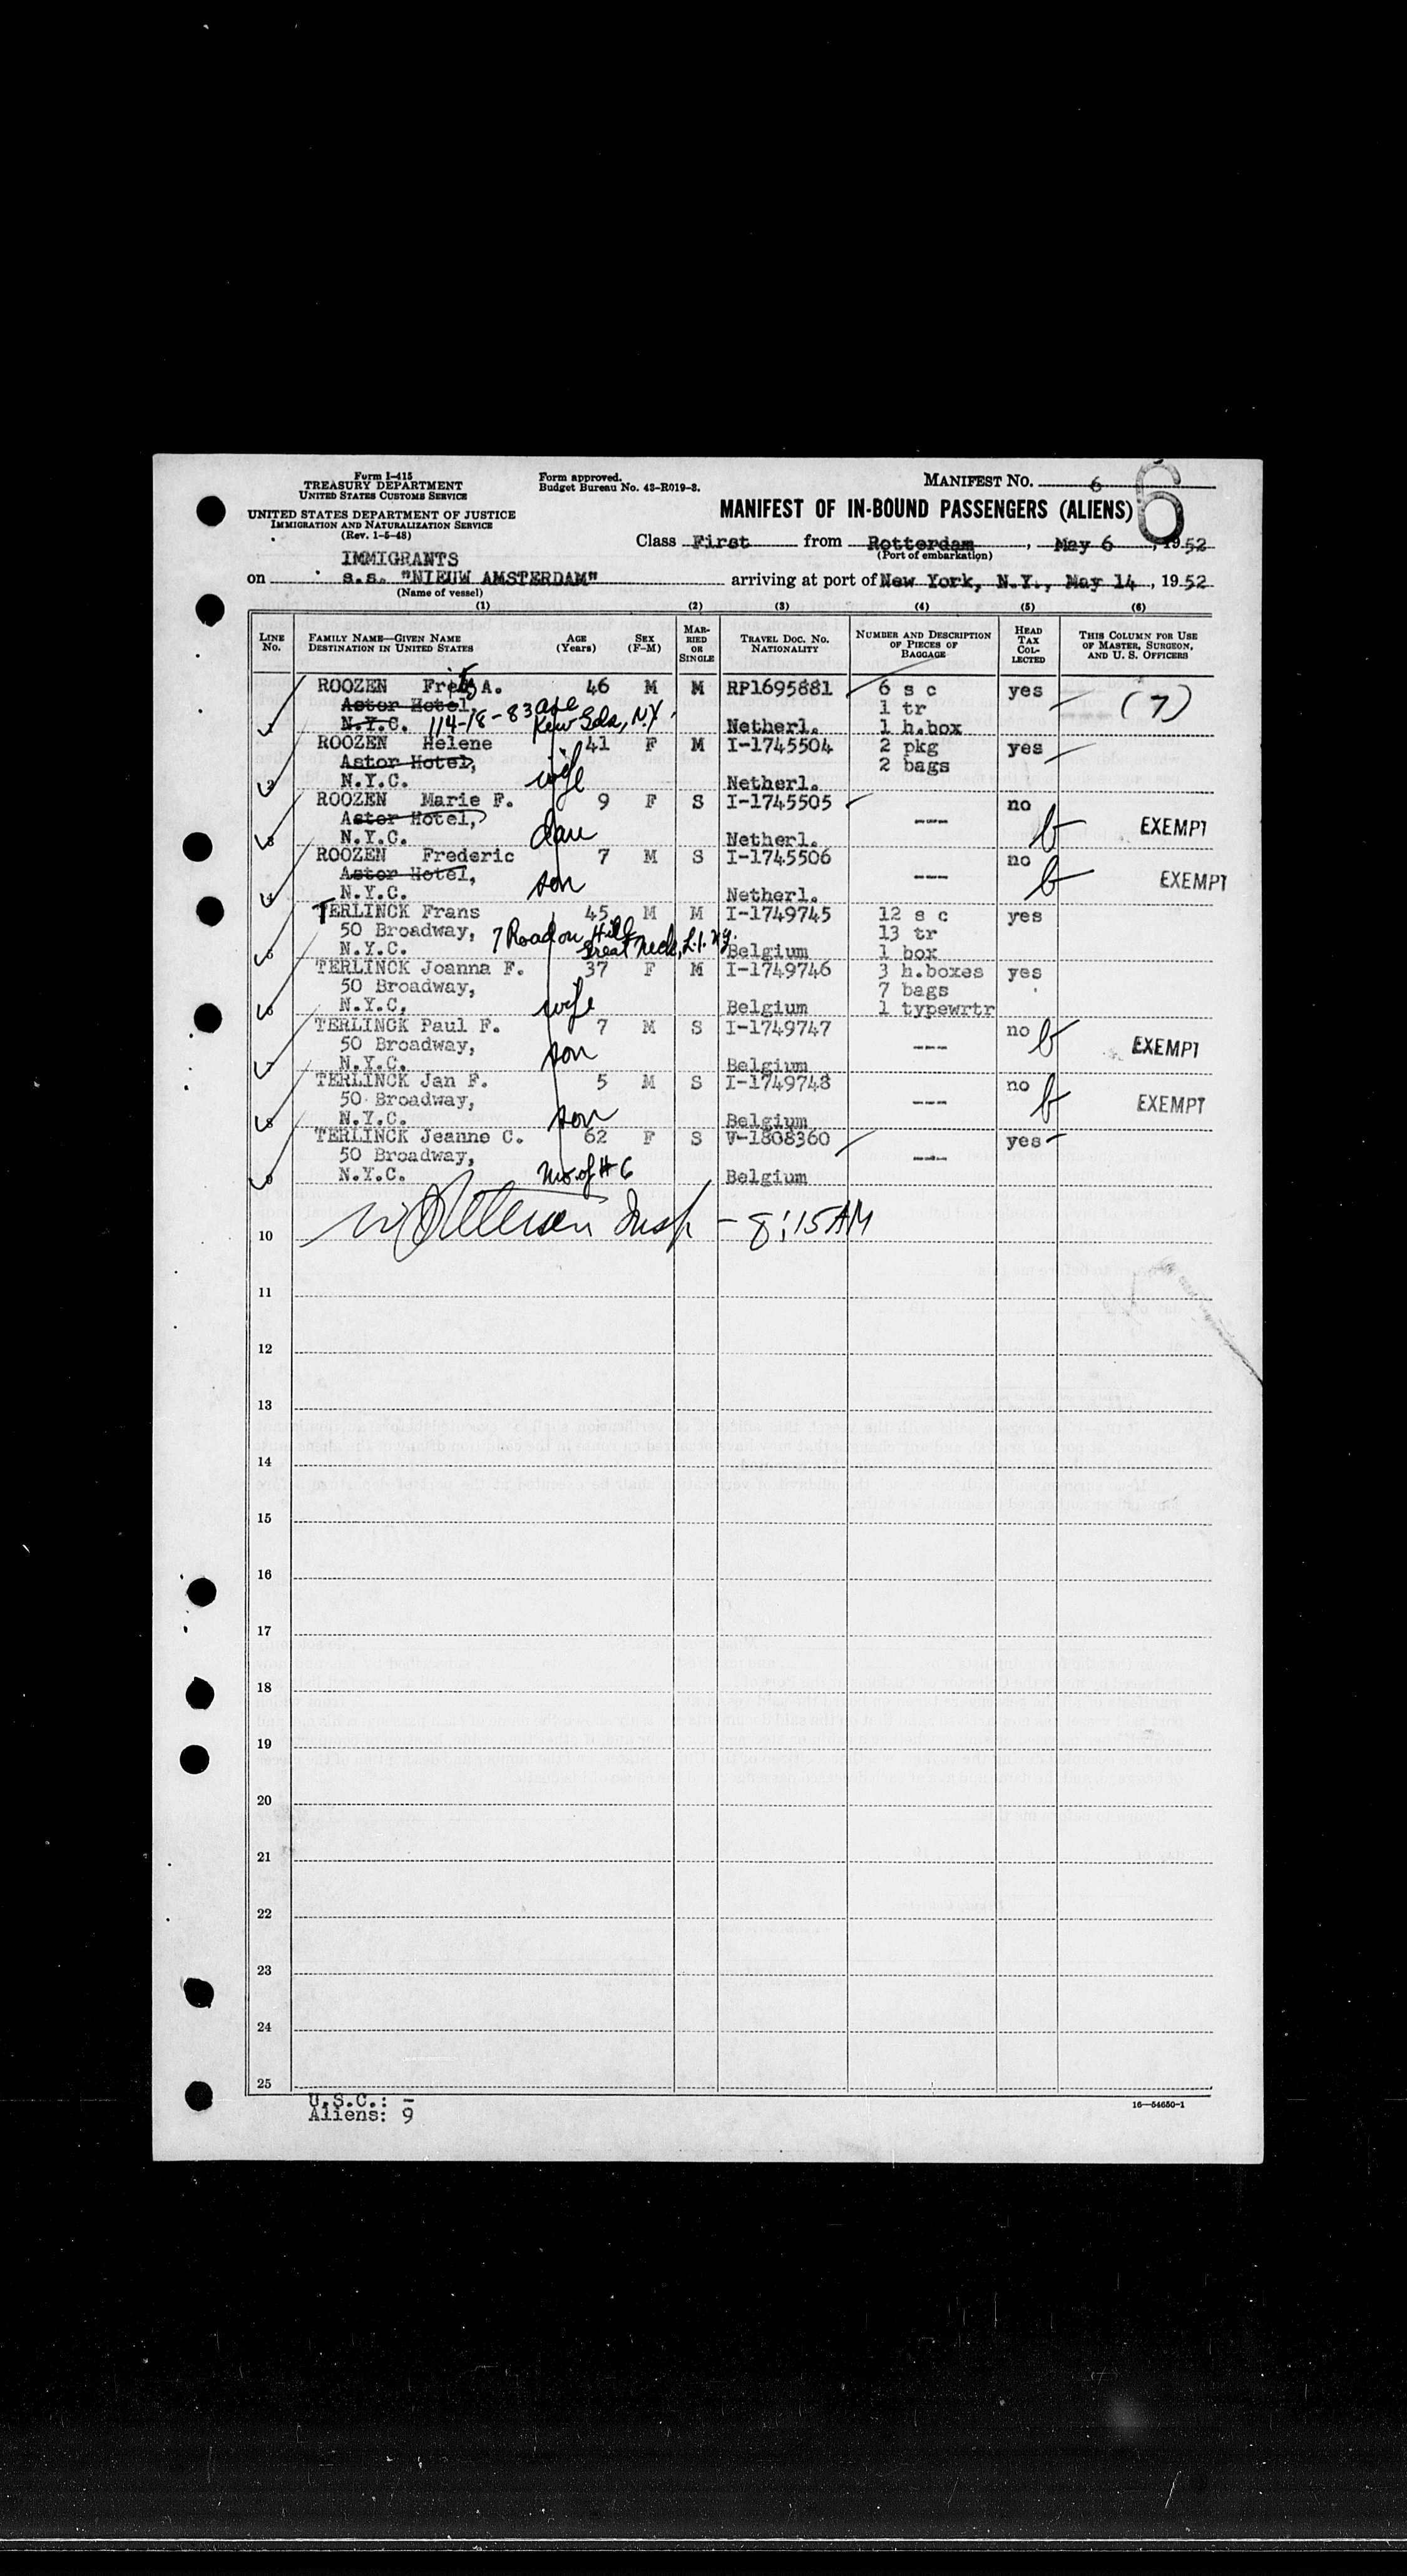 Form I-415
TREASURY DEPARTMENT
UNITED STATES CUSTOMS SERVICE
UNITED STATES DEPARTMENT OF JUSTICE
IMMIGRATION AND NATURALIZATION SERVICE
(Rev. 1-5-48)
Form approved.
Budget Bureau No. 43-R019-3.
MANIFEST NO. 6
6
MANIFEST OF IN-BOUND PASSENGERS (ALIENS)
Class First from Rotterdam, May 6, 1952
(Port of embarkation)
IMMIGRANTS
on s.s. "NIEUW AMSTERDAM" arriving at port of New York, N.Y., May 14, 1952
(Name of vessel)
(1) (2) (3) (4) (5) (6)
LINE No.
FAMILY NAME—GIVEN NAME DESTINATION IN UNITED STATES
AGE (Years)
SEX (F-M)
MARRIED OR SINGLE
TRAVEL DOC. NO. NATIONALITY
NUMBER AND DESCRIPTION OF PIECES OF BAGGAGE
HEAD TAX COLLECTED
THIS COLUMN FOR USE OF MASTER, SURGEON, AND U. S. OFFICERS
ROOZEN Frits A. 46 M M RP1695881 6 s c yes (7)
Astor Hotel, 1 tr
N.Y.C. 114-18-83 ave Kew Gds, N.Y. Netherl. 1 h.box
ROOZEN Helene 41 F M I-1745504 2 pkg yes
Astor Hotel, 2 bags
N.Y.C. wife Netherl.
ROOZEN Marie F. 9 F S I-1745505 no
Astor Hotel, --- EXEMPT
N.Y.C. dau Netherl.
ROOZEN Frederic 7 M S I-1745506 no
Astor Hotel, --- EXEMPT
N.Y.C. son Netherl.
TERLINCK Frans 45 M M I-1749745 12 s c yes
50 Broadway, 7 Road on Hill 13 tr
N.Y.C. Great Neck, L.I. N.Y. Belgium 1 box
TERLINCK Joanna F. 37 F M I-1749746 3 h.boxes yes
50 Broadway, 7 bags
N.Y.C. wife Belgium 1 typewrtr
TERLINCK Paul F. 7 M S I-1749747 no
50 Broadway, --- EXEMPT
N.Y.C. son Belgium
TERLINCK Jan F. 5 M S I-1749748 no
50 Broadway, --- EXEMPT
N.Y.C. son Belgium
TERLINCK Jeanne C. 62 F S V-1808360 yes
50 Broadway, ---
N.Y.C. mo. of #6 Belgium
Insp - 8:15 AM
10
11
12
13
14
15
16
17
18
19
20
21
22
23
24
25
U.S.C.: -
Aliens: 9
16—54650-1